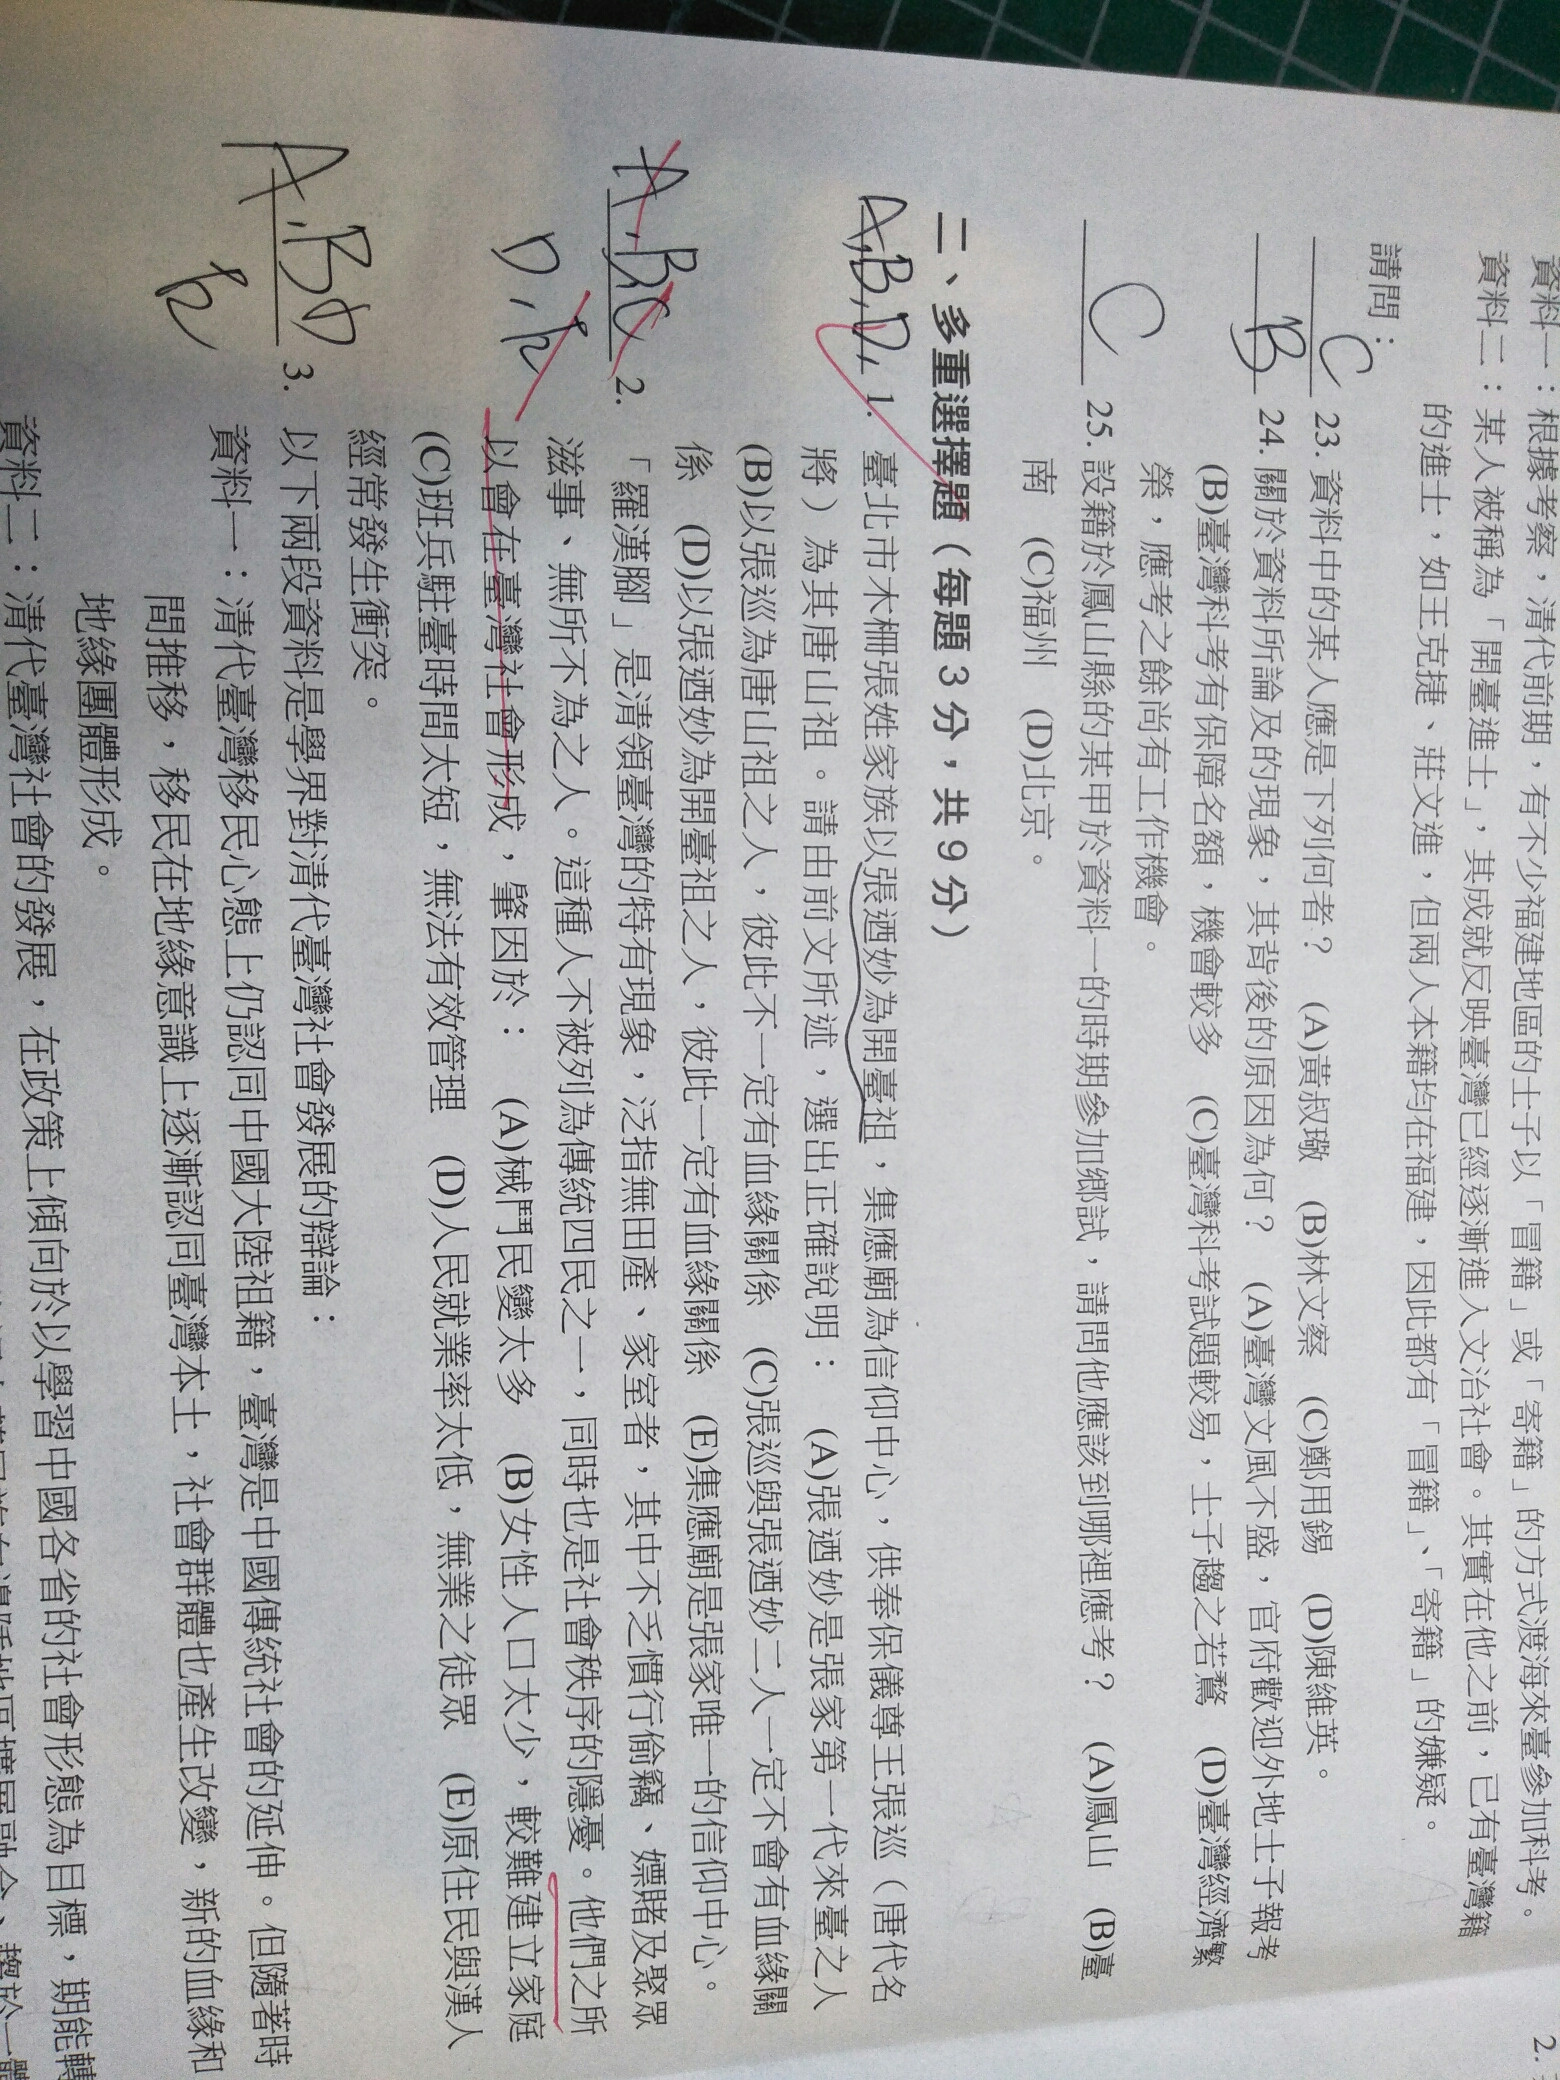 資料一：根據考察，清代前期，有不少福建地區的士子以「冒籍」或「寄籍」的方式渡海來臺參加科考。
資料二：某人被稱為「開臺進士」，其成就反映臺灣已經逐漸進入文治社會。其實在他之前，已有臺灣籍
的進士，如王克捷、莊文進，但兩人本籍均在福建，因此都有「冒籍」、「寄籍」的嫌疑。
請問：
C 23. 資料中的某人應是下列何者？ (A)黃叔璥 (B)林文察 (C)鄭用錫 (D)陳維英。
B 24. 關於資料所論及的現象，其背後的原因為何？ (A)臺灣文風不盛，官府歡迎外地士子報考
(B)臺灣科考有保障名額，機會較多 (C)臺灣科考試題較易，士子趨之若鶩 (D)臺灣經濟繁
榮，應考之餘尚有工作機會。
C 25. 設籍於鳳山縣的某甲於資料一的時期參加鄉試，請問他應該到哪裡應考？ (A)鳳山 (B)臺
南 (C)福州 (D)北京。
二、多重選擇題（每題3分，共9分）
A,B,D, 1. 臺北市木柵張姓家族以張迺妙為開臺祖，集應廟為信仰中心，供奉保儀尊王張巡（唐代名
將）為其唐山祖。請由前文所述，選出正確說明： (A)張迺妙是張家第一代來臺之人
(B)以張巡為唐山祖之人，彼此不一定有血緣關係 (C)張巡與張迺妙二人一定不會有血緣關
係 (D)以張迺妙為開臺祖之人，彼此一定有血緣關係 (E)集應廟是張家唯一的信仰中心。
A,BC 2. 「羅漢腳」是清領臺灣的特有現象，泛指無田產、家室者，其中不乏慣行偷竊、嫖賭及聚眾
滋事、無所不為之人。這種人不被列為傳統四民之一，同時也是社會秩序的隱憂。他們之所
D,E 以會在臺灣社會形成，肇因於： (A)械鬥民變太多 (B)女性人口太少，較難建立家庭
(C)班兵駐臺時間太短，無法有效管理 (D)人民就業率太低，無業之徒眾 (E)原住民與漢人
經常發生衝突。
A,BD 3. 以下兩段資料是學界對清代臺灣社會發展的辯論：
E 資料一：清代臺灣移民心態上仍認同中國大陸祖籍，臺灣是中國傳統社會的延伸。但隨著時
間推移，移民在地緣意識上逐漸認同臺灣本土，社會群體也產生改變，新的血緣和
地緣團體形成。
資料二：清代臺灣社會的發展，在政策上傾向於以學習中國各省的社會形態為目標，期能轉
2.